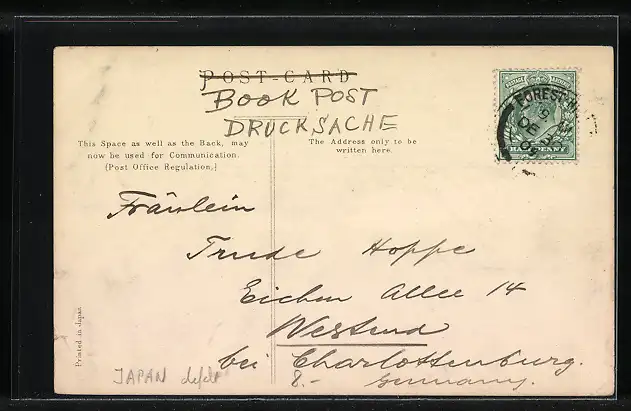 POST-CARD
BOOK POST
DRUCKSACHE
This Space as well as the Back, may
now be used for Communication.
(Post Office Regulation.)
The Address only to be
written here.
HALFPENNY
Fräulein
Trude Hoppe
Eichen Allee 14
Westend
bei Charlottenburg.
Germany.
8.-
JAPAN
Printed in Japan